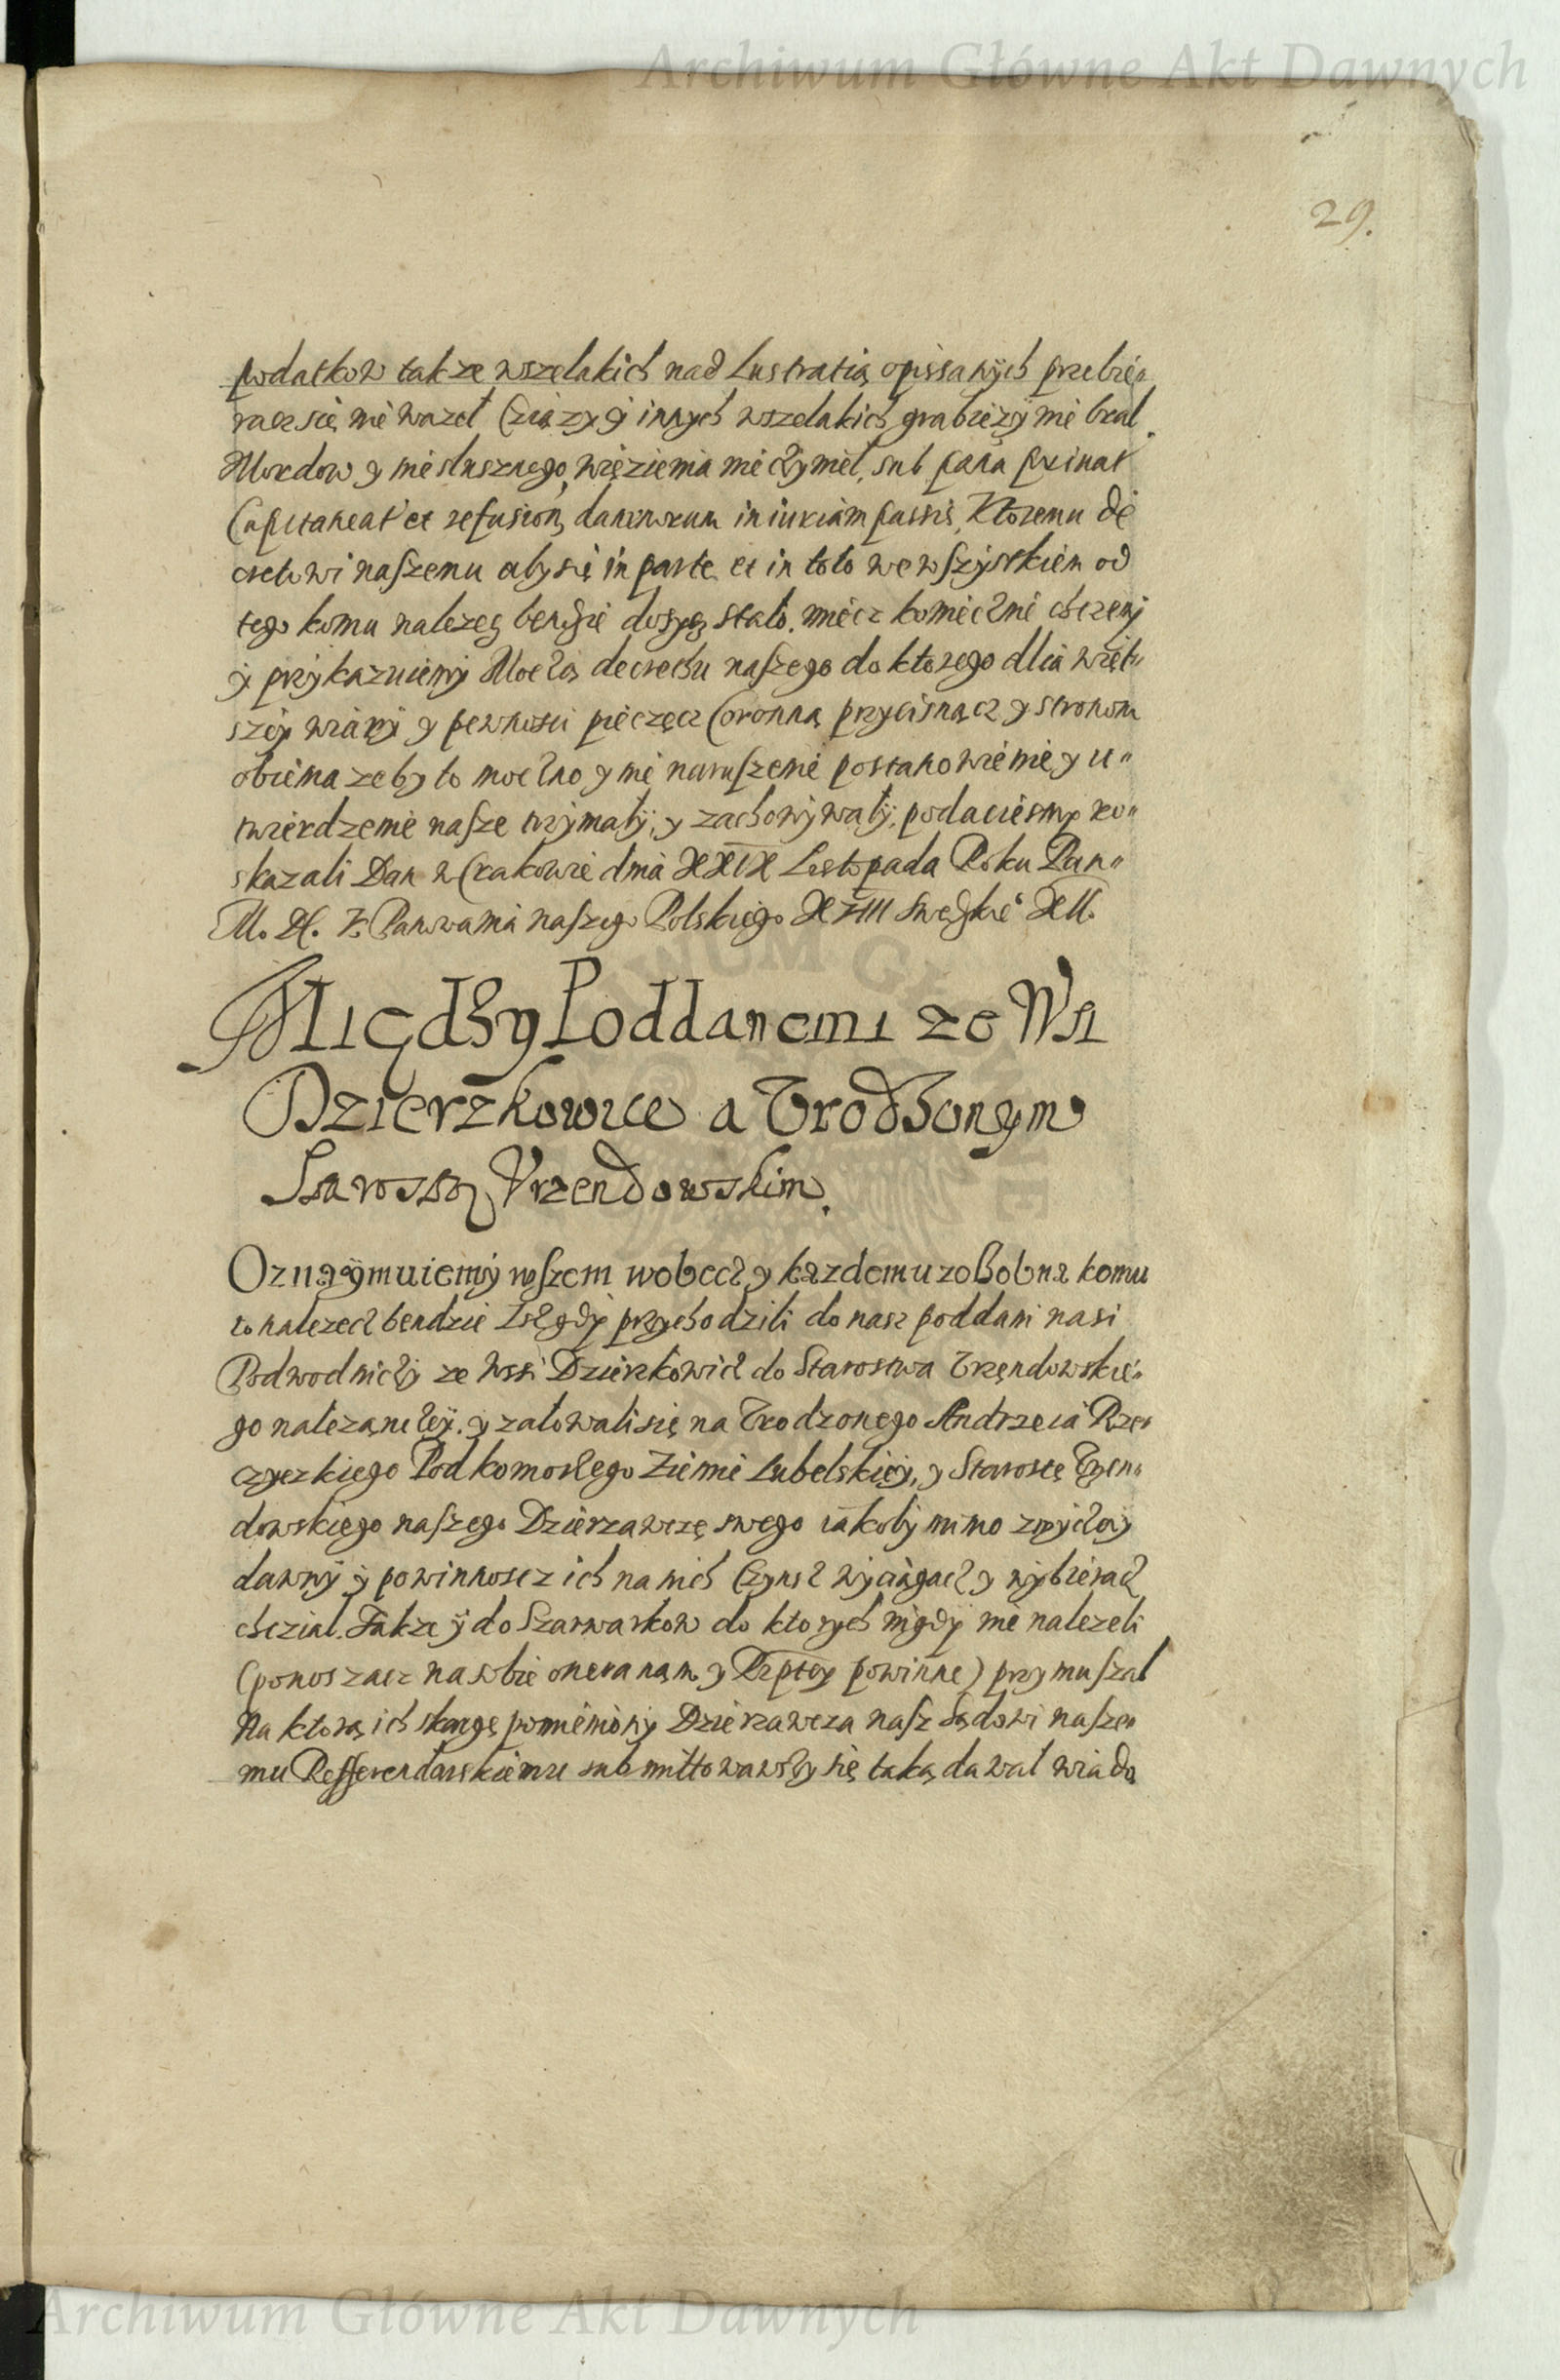 Archiwum Główne Akt Dawnych
29.
podatkow takze wszelakich nad Lustratią opissanych przebie„
racz się nie wazeł Cziązy y innych wszelakich grabiezÿ nie brał
Mordow y niesłusznego więzienia nie czÿnieł, sub pæna privat
Capitaneat et refusioń damnorum iniuriam passis, Ktoremu de
cretowi naszemu aby się in parte et in toto we wszÿstkiem od
tego komu nalezeć bendzie dosyć stało. miecz koniecznie chczemÿ
ÿ przÿkazuiemÿ Moczą decrethu naszego do ktorego dlia więt„
szeÿ wiarÿ y pewnosci pieczęcz Coronną przycisnącz y stronom
obiema zeby to moczno y nie naruszenie postanowienie y u„
twierdzenie nasze trzÿmałÿ, y zachowÿwałÿ, podaciesmy ro„
skazali Dan w Crakowie dnia XXIX Listopada Roku Pan„
Panowania naszego Polskiego XVIII Swedzkie°
Między Poddanemi ze Wsi
Dzierzkowice a Urodzonym
Starostą Vrzendowskim.
Oznaÿmuiemÿ wszem wobecz y kazdemu zosobna komu
to nalezecz bendzie Isz gdÿ przychodzili do nasz poddani nasi
Podwodniczÿ ze wssi Dzierzkowicz do Starostwa Urzęndowskie„
go nalezącczeÿ. y załowali się na Urodzonego Andrzeia Rze„
czyczkiego Podkomorzego Ziemie Lubelskieÿ, y Starostę Vrzen„
dowskiego naszego Dzierzawczę swego iakobÿ mimo zwyczaÿ
dawnÿ ÿ powinnoscz ich na nich Czynsz wÿciągacz y wÿbieracz
chcział. Takze ÿ do Szarwarkow do ktorych nigdÿ nie nalezeli
(ponoszacz na sobie onera nąm y Rzptey powinne) przymuszał
Na ktorą ich skargę pomienionÿ Dzierzawcza nasz Sądowi nasze„
mu Refferendarskiemu submittowawszy się taką dawał wiado
Archiwum Główne Akt Dawnych